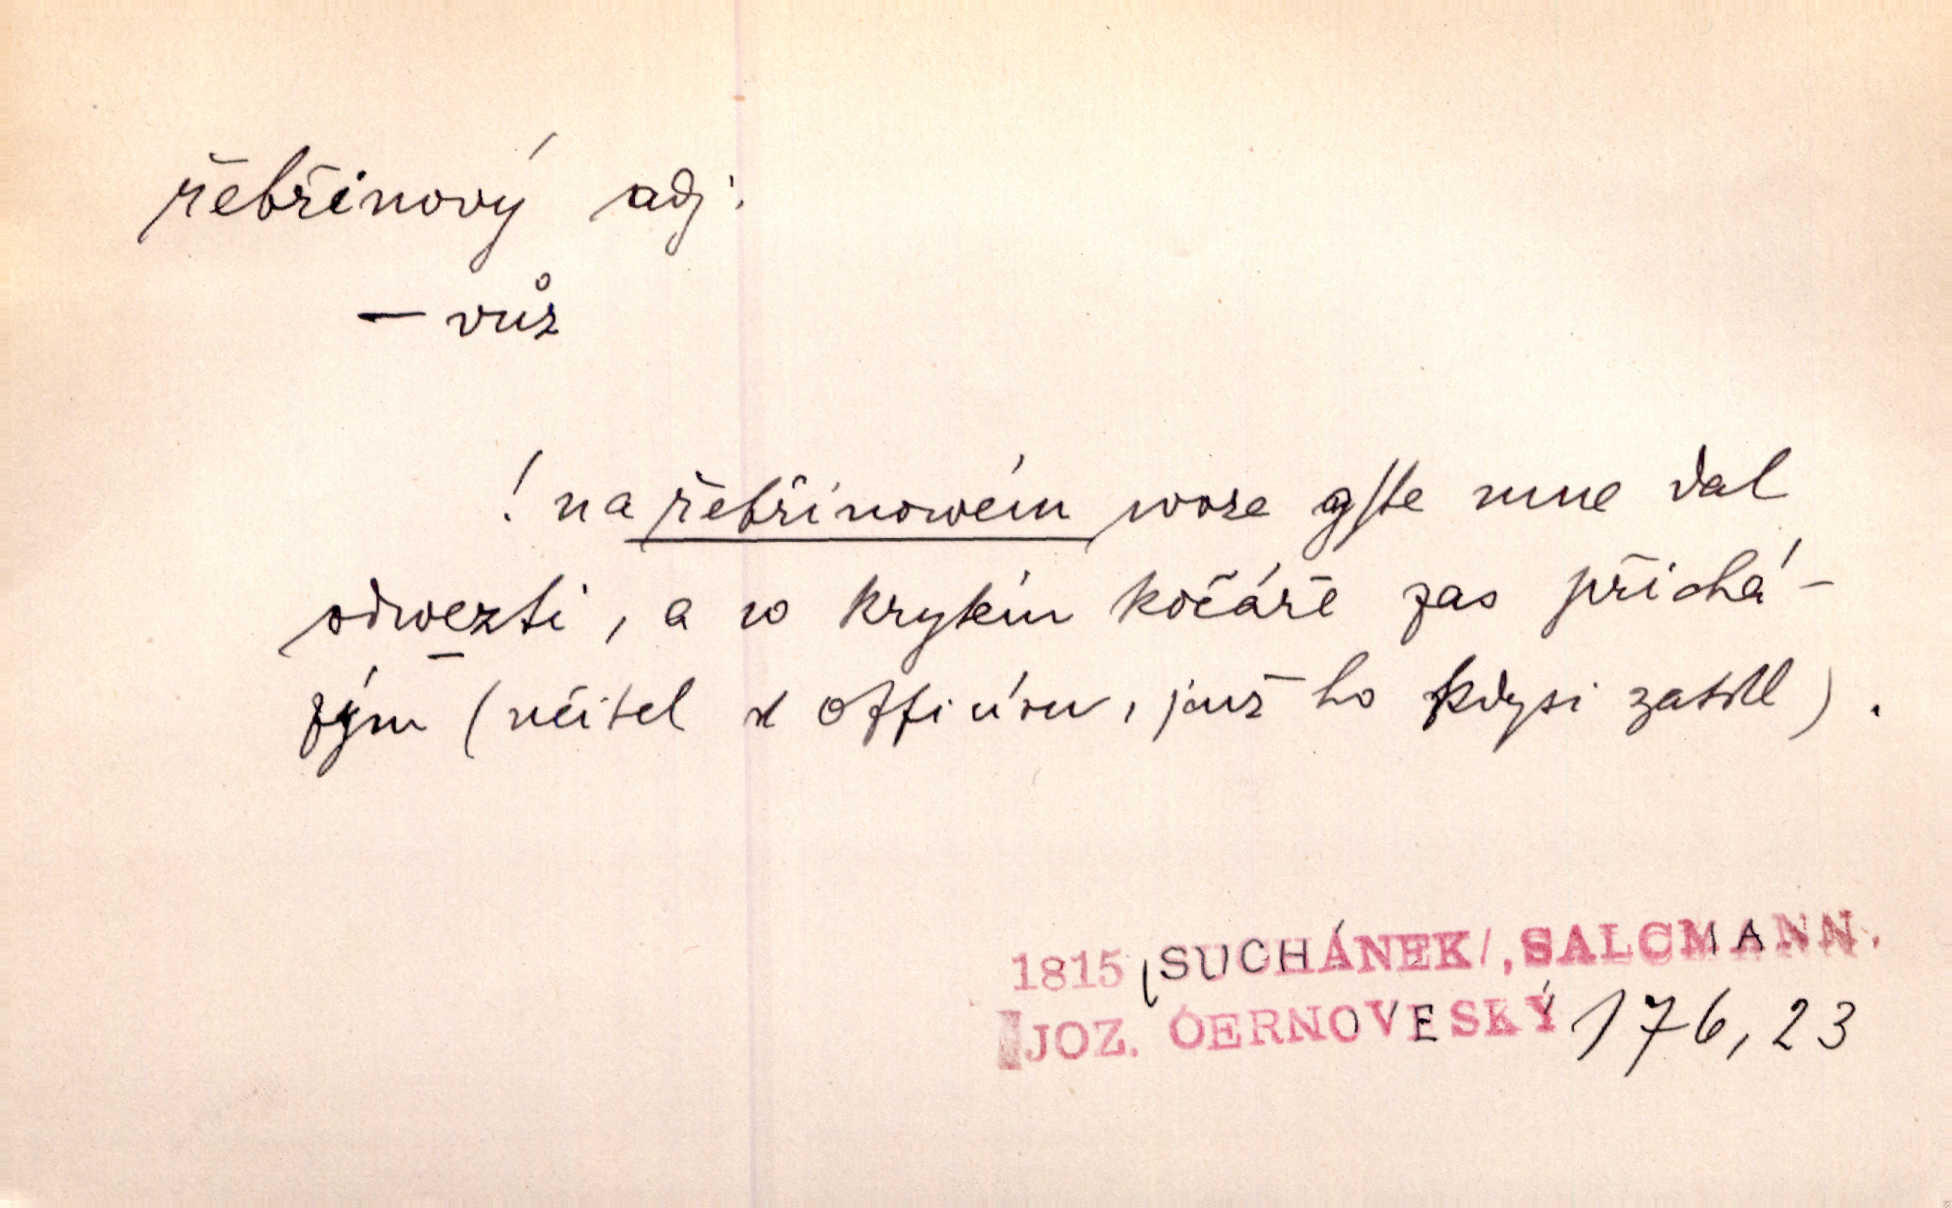 řebřinový adj.
— vůz
! na řebřinowém woze gste mne dal
odwezti, a w krytém kočáře zas přichá-
zým (učitel k officíru, jenž ho kdysi zatkl).
1815 (SUCHÁNEK/, SALCMANN.
JOZ. ČERNOVESKÝ 176,23